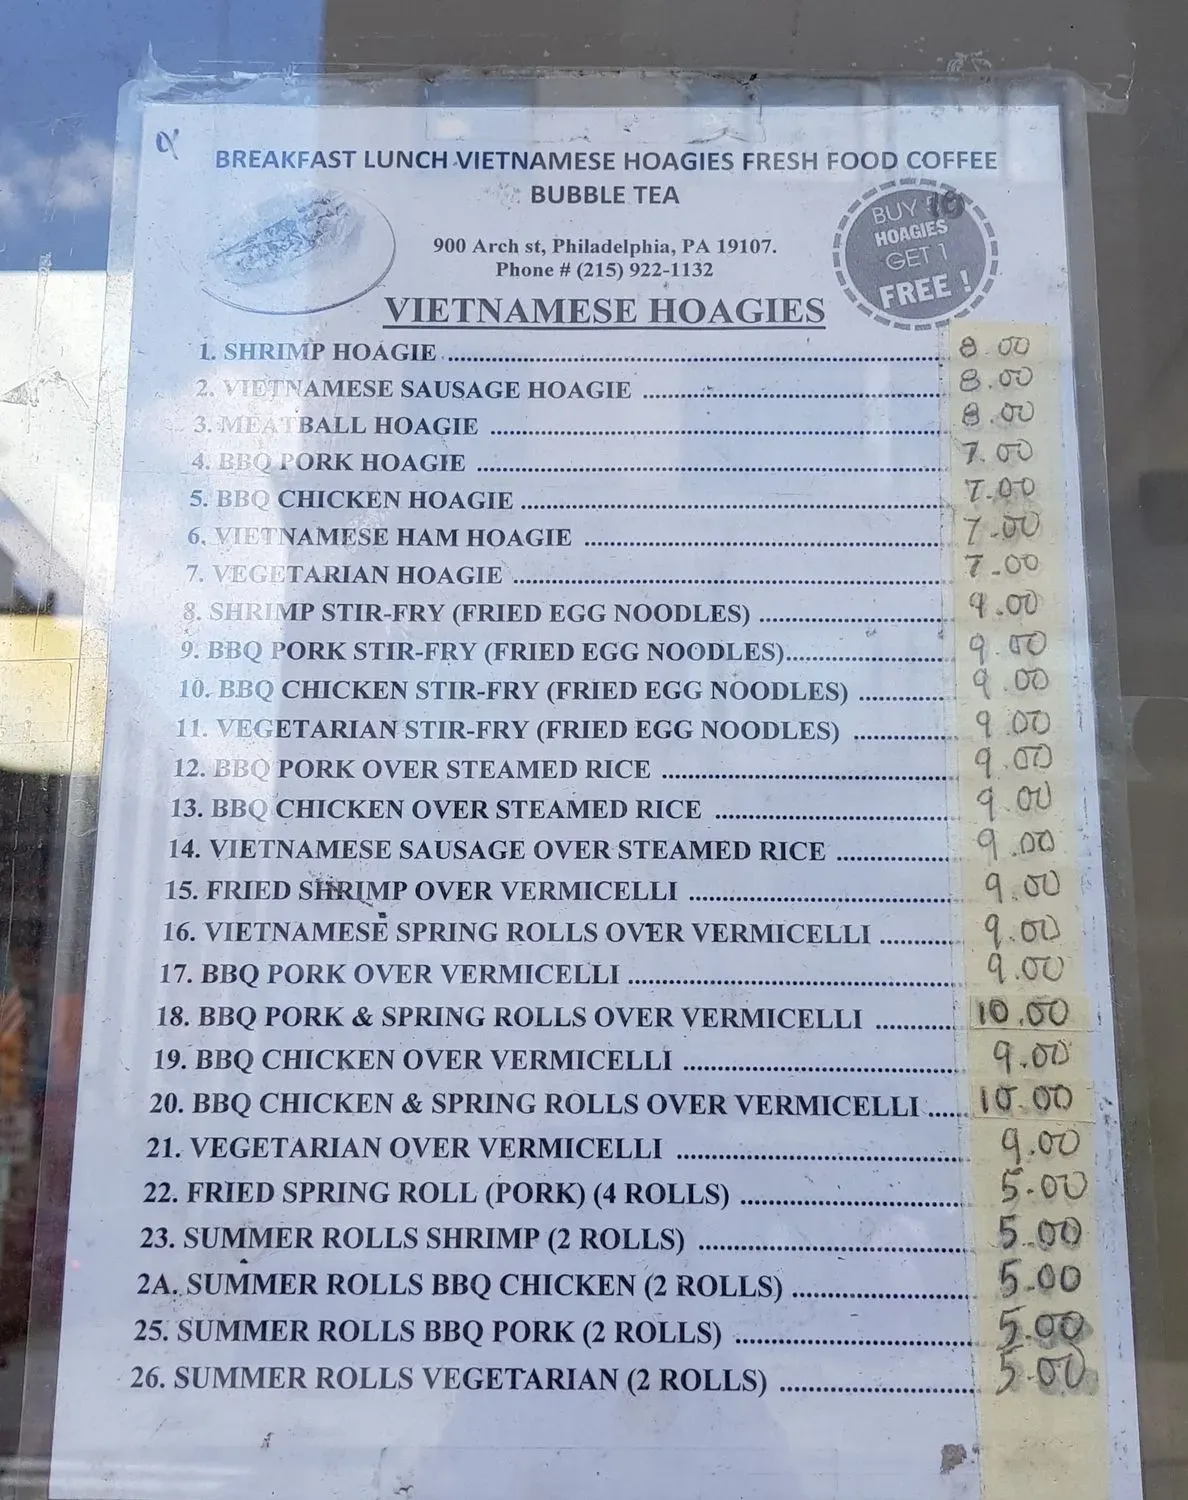 BREAKFAST LUNCH VIETNAMESE HOAGIES FRESH FOOD COFFEE
BUBBLE TEA
900 Arch st, Philadelphia, PA 19107.
Phone # (215) 922-1132
BUY 10
HOAGIES
GET 1
FREE !
VIETNAMESE HOAGIES
1. SHRIMP HOAGIE 8.00
2. VIETNAMESE SAUSAGE HOAGIE 8.00
3. MEATBALL HOAGIE 8.00
4. BBQ PORK HOAGIE 7.00
5. BBQ CHICKEN HOAGIE 7.00
6. VIETNAMESE HAM HOAGIE 7.00
7. VEGETARIAN HOAGIE 7.00
8. SHRIMP STIR-FRY (FRIED EGG NOODLES) 9.00
9. BBQ PORK STIR-FRY (FRIED EGG NOODLES) 9.00
10. BBQ CHICKEN STIR-FRY (FRIED EGG NOODLES) 9.00
11. VEGETARIAN STIR-FRY (FRIED EGG NOODLES) 9.00
12. BBQ PORK OVER STEAMED RICE 9.00
13. BBQ CHICKEN OVER STEAMED RICE 9.00
14. VIETNAMESE SAUSAGE OVER STEAMED RICE 9.00
15. FRIED SHRIMP OVER VERMICELLI 9.00
16. VIETNAMESE SPRING ROLLS OVER VERMICELLI 9.00
17. BBQ PORK OVER VERMICELLI 9.00
18. BBQ PORK & SPRING ROLLS OVER VERMICELLI 10.00
19. BBQ CHICKEN OVER VERMICELLI 9.00
20. BBQ CHICKEN & SPRING ROLLS OVER VERMICELLI 10.00
21. VEGETARIAN OVER VERMICELLI 9.00
22. FRIED SPRING ROLL (PORK) (4 ROLLS) 5.00
23. SUMMER ROLLS SHRIMP (2 ROLLS) 5.00
2A. SUMMER ROLLS BBQ CHICKEN (2 ROLLS) 5.00
25. SUMMER ROLLS BBQ PORK (2 ROLLS) 5.00
26. SUMMER ROLLS VEGETARIAN (2 ROLLS) 5.00